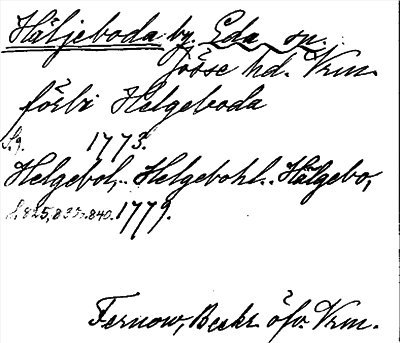 Häljeboda by. Eda sn.
Jösse hd. Vrm.
förbi Helgeboda
S. 9. 1773.
Helgebol, Helgebohl. Hälgebo,
S. 825, 835. 840. 1779.
Fernow, Beskr. öfv. Vrm.